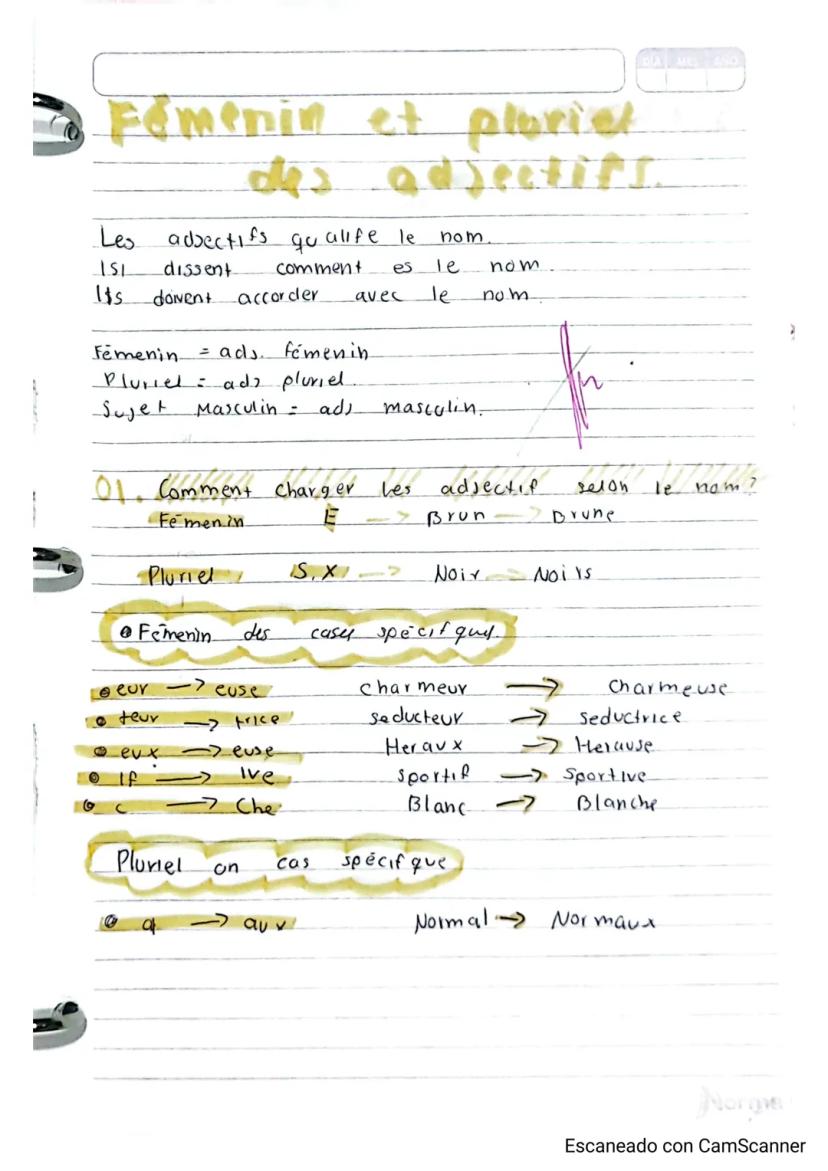 DIA MES AÑO
Fémenin et pluriel
des adjectifs.
Les adjectifs qualife le nom.
ISI dissent comment es le nom.
Ils doivent accorder avec le nom.
Fémenin = adj. fémenin
Pluriel = adj pluriel.
Sujet Masculin = adj masculin.
01. Comment charger les adjectif selon le nom?
Fémenin E -> Brun -> Brune
Pluriel S, X -> Noir -> Noirs
Fémenin des casex spécifques.
eur -> euse charmeur -> Charmeuse
teur -> trice seducteur -> seductrice
eux -> euse Heraux -> Herause
If -> Ive sportif -> Sportive
c -> Che Blanc -> Blanche
Pluriel on cas spécifque
al -> aux Normal -> Normaux
Norma
Escaneado con CamScanner